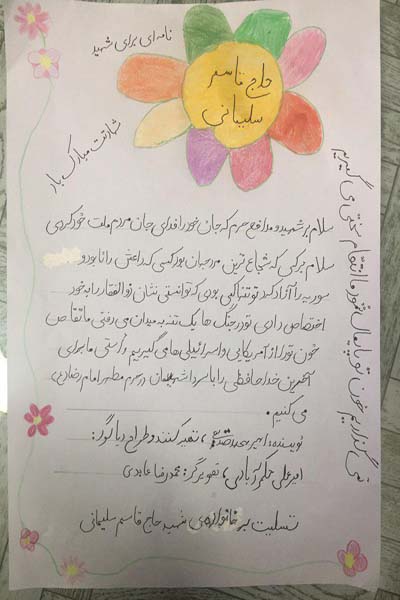 نامه‌ای برای شهید
حاج قاسم
سلیمانی
شهادتت مبارک باد
سلام بر شهید و مدافع حرم که جان خود را فدای جان مردم ملت خود کردی
سلام بر کسی که شجاع ترین مرد جهان بود کسی که داعش را نابود و
سوریه را آزاد کرد تو تنها کسی بودی که توانستی نشان ذوالفقار را به خود
اختصاص دادی تو در جنگ ها یک تنه به میدان می رفتی ما تقاص
خون تو را از آمریکایی و اسرائیلی ها می گیریم راستی ما برای
آخرین خداحافظی را با سردارمان در حرم مطهر امام رضا(ع)
می کنیم.
نویسنده: امیر محمد ، تفکر کننده و طراح دیالوگ:
امیرعلی حکم آبادی، تصویرگر: محمدرضا عابدی
تسلیت بر خانواده‌ی شهید حاج قاسم سلیمانی
نمی گذاریم خون تو پایمال شود ما انتقام سختی می گیریم